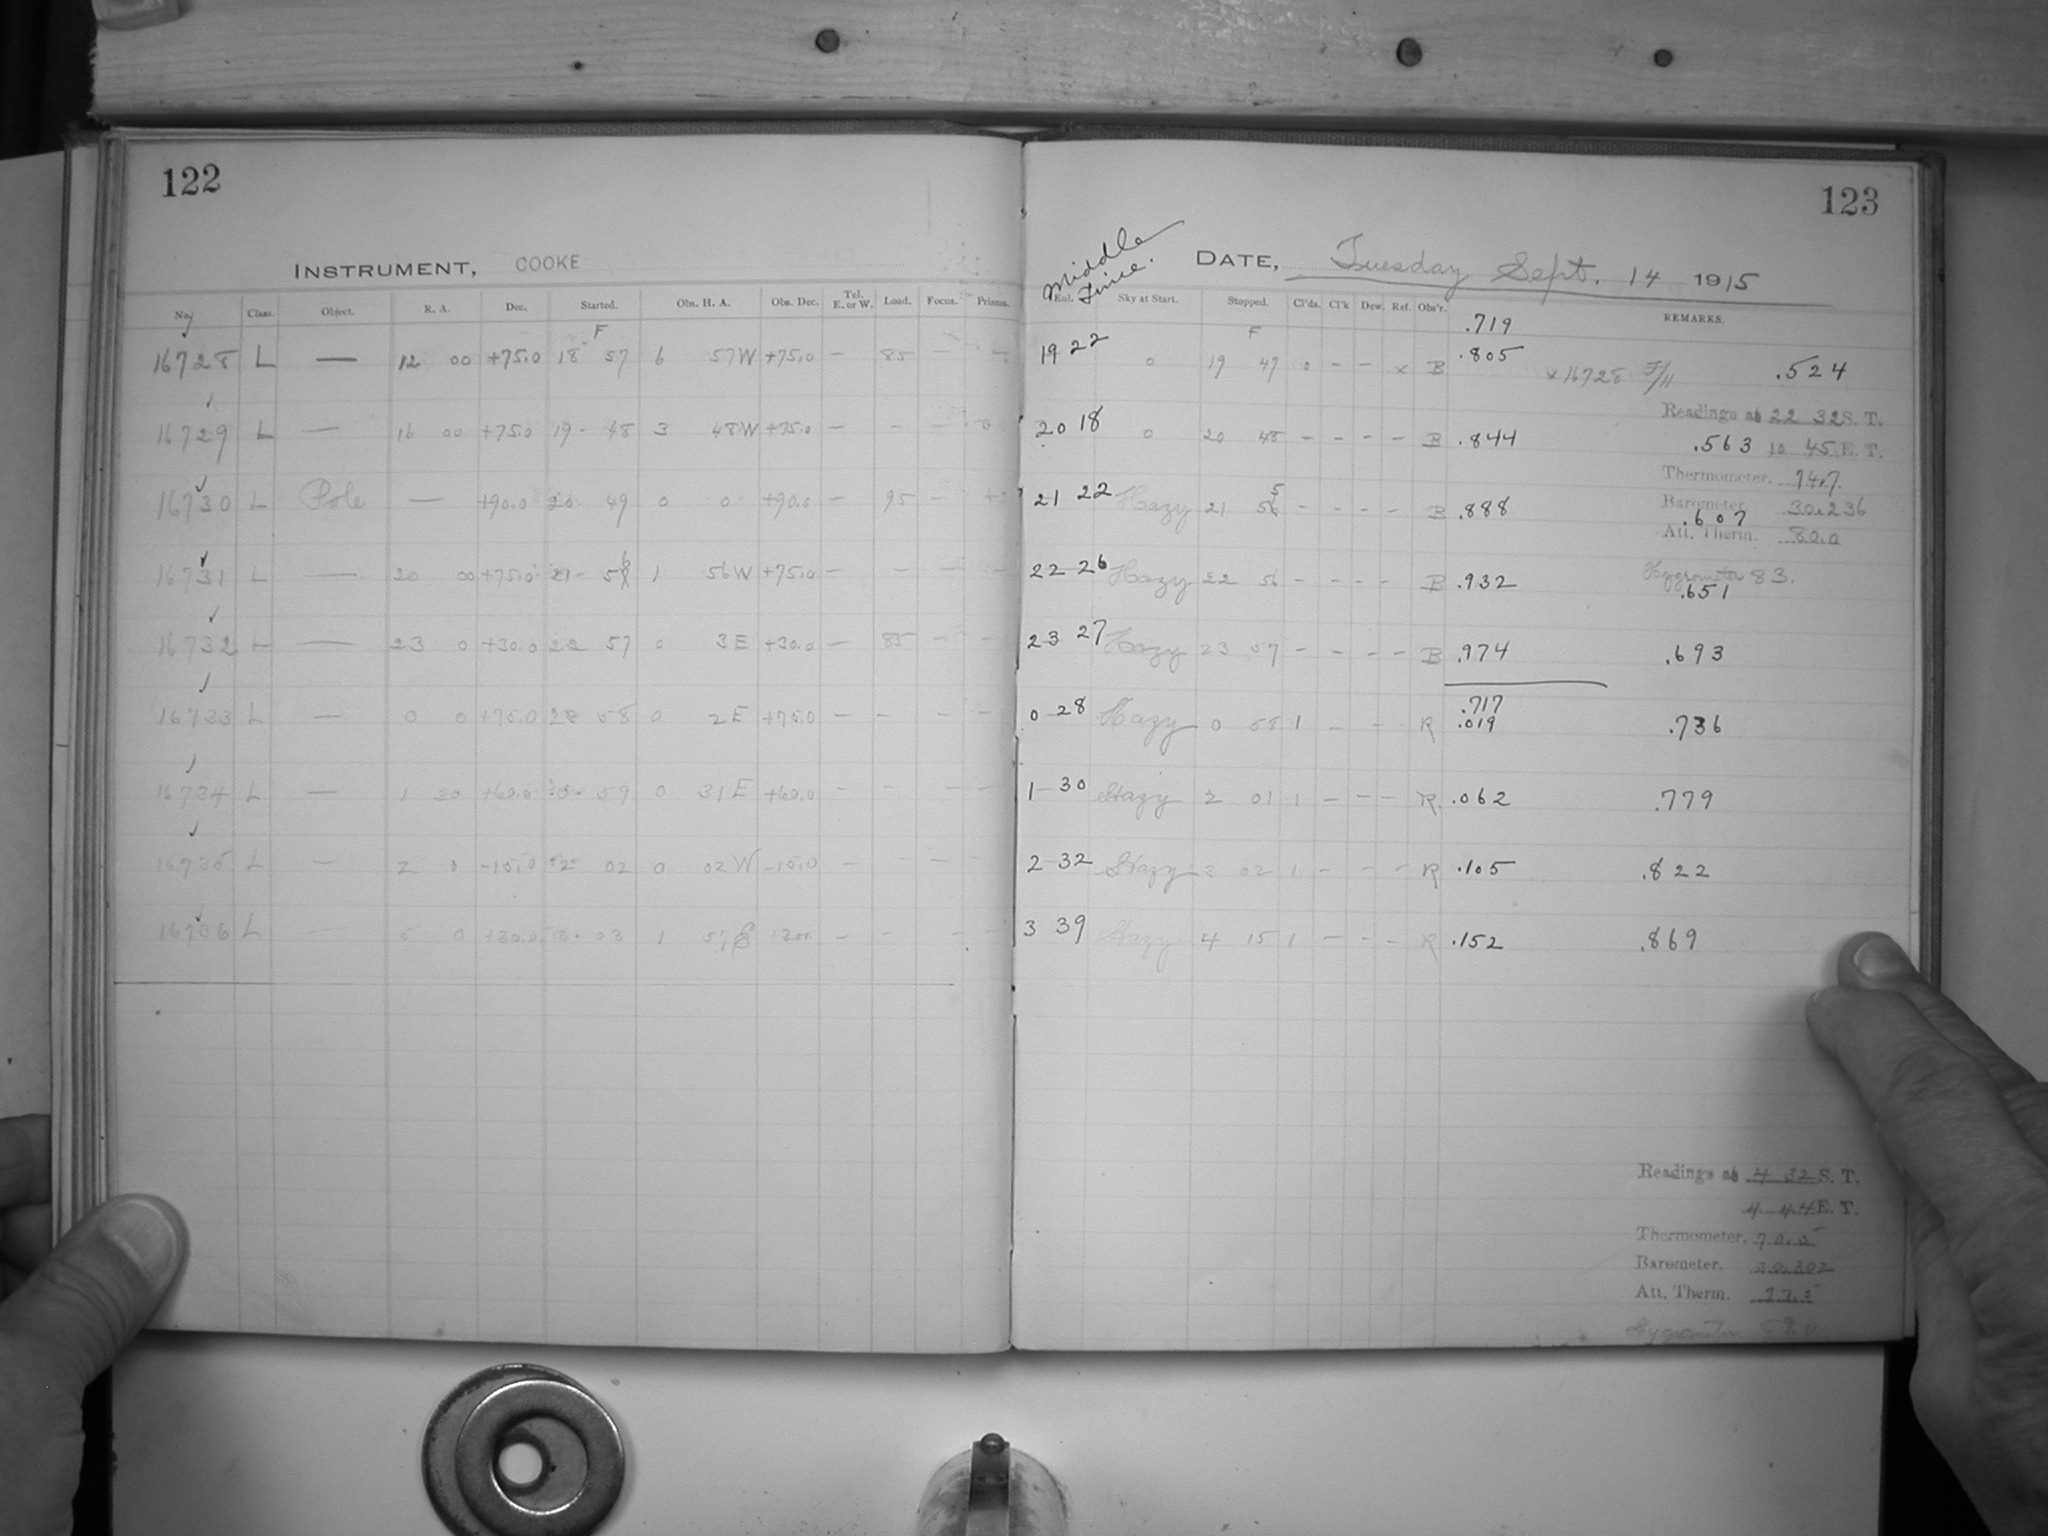 122
INSTRUMENT, COOKE
No. Class. Object. R. A. Dec. Started. Obs. H. A. Obs. Dec. Tel. E. or W. Load. Focus. Prisms.
F
16728 L — 12 00 +75.0 18 57 6 57W +75.0 — 85 — —
16729 L — 16 00 +75.0 19 48 3 48W +75.0 — — —
16730 L Pole — +90.0 20 49 0 0 +90.0 — 95 —
16731 L — 20 00 +75.0 21 56 1 56W +75.0 — — — —
16732 L — 23 0 +30.0 22 57 0 3E +30.0 — 85 — —
16733 L — 0 0 +75.0 23 58 0 2E +75.0 — — — —
16734 L — 1 30 +60.0 0 59 0 31E +60.0 — — — —
16735 L — 2 0 -15.0 2 02 0 02W -15.0 — — — —
16736 L — 5 0 +30.0 3 03 1 57E 30. — — — —
123
Middle Time.
DATE, Tuesday Sept. 14 1915
Sky at Start. Stopped. Cl'ds. Cl'k Dew. Ref. Obs'r. REMARKS.
.719
F
19 22 0 19 47 0 — — x B .805 x 16728 F/11 .524
Readings at 22 32 S. T.
20 18 0 20 48 — — — — B .844 .563 10 45 E. T.
Thermometer. 74.7
21 22 Hazy 21 55 — — — — B .888 Barometer 30.236
.607
Att. Therm. 80.0
22 26 Hazy 22 56 — — — — B .932 Hygrometer 83.
.651
23 27 Hazy 23 57 — — — — B .974 .693
.717
0 28 Hazy 0 58 1 — — — R .019 .736
1 30 Hazy 2 01 1 — — — R. .062 .779
2 32 Hazy 3 02 1 — — — R .105 .822
3 39 Hazy 4 15 1 — — — R .152 .869
Readings at 4 32 S. T.
4 44 E. T.
Thermometer. 70.5
Barometer. 30.202
Att. Therm. 77.5
Hygrometer